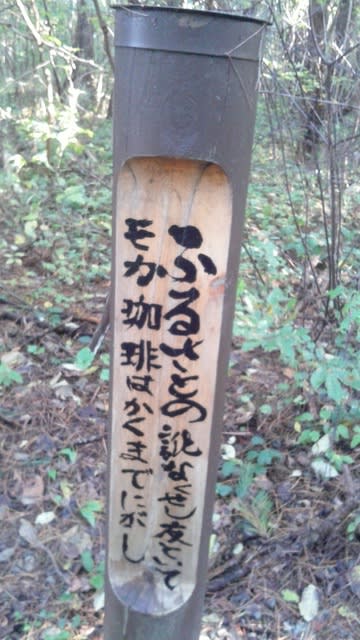 ふるさとの訛なくせし友といて
モカ珈琲はかくまでにがし